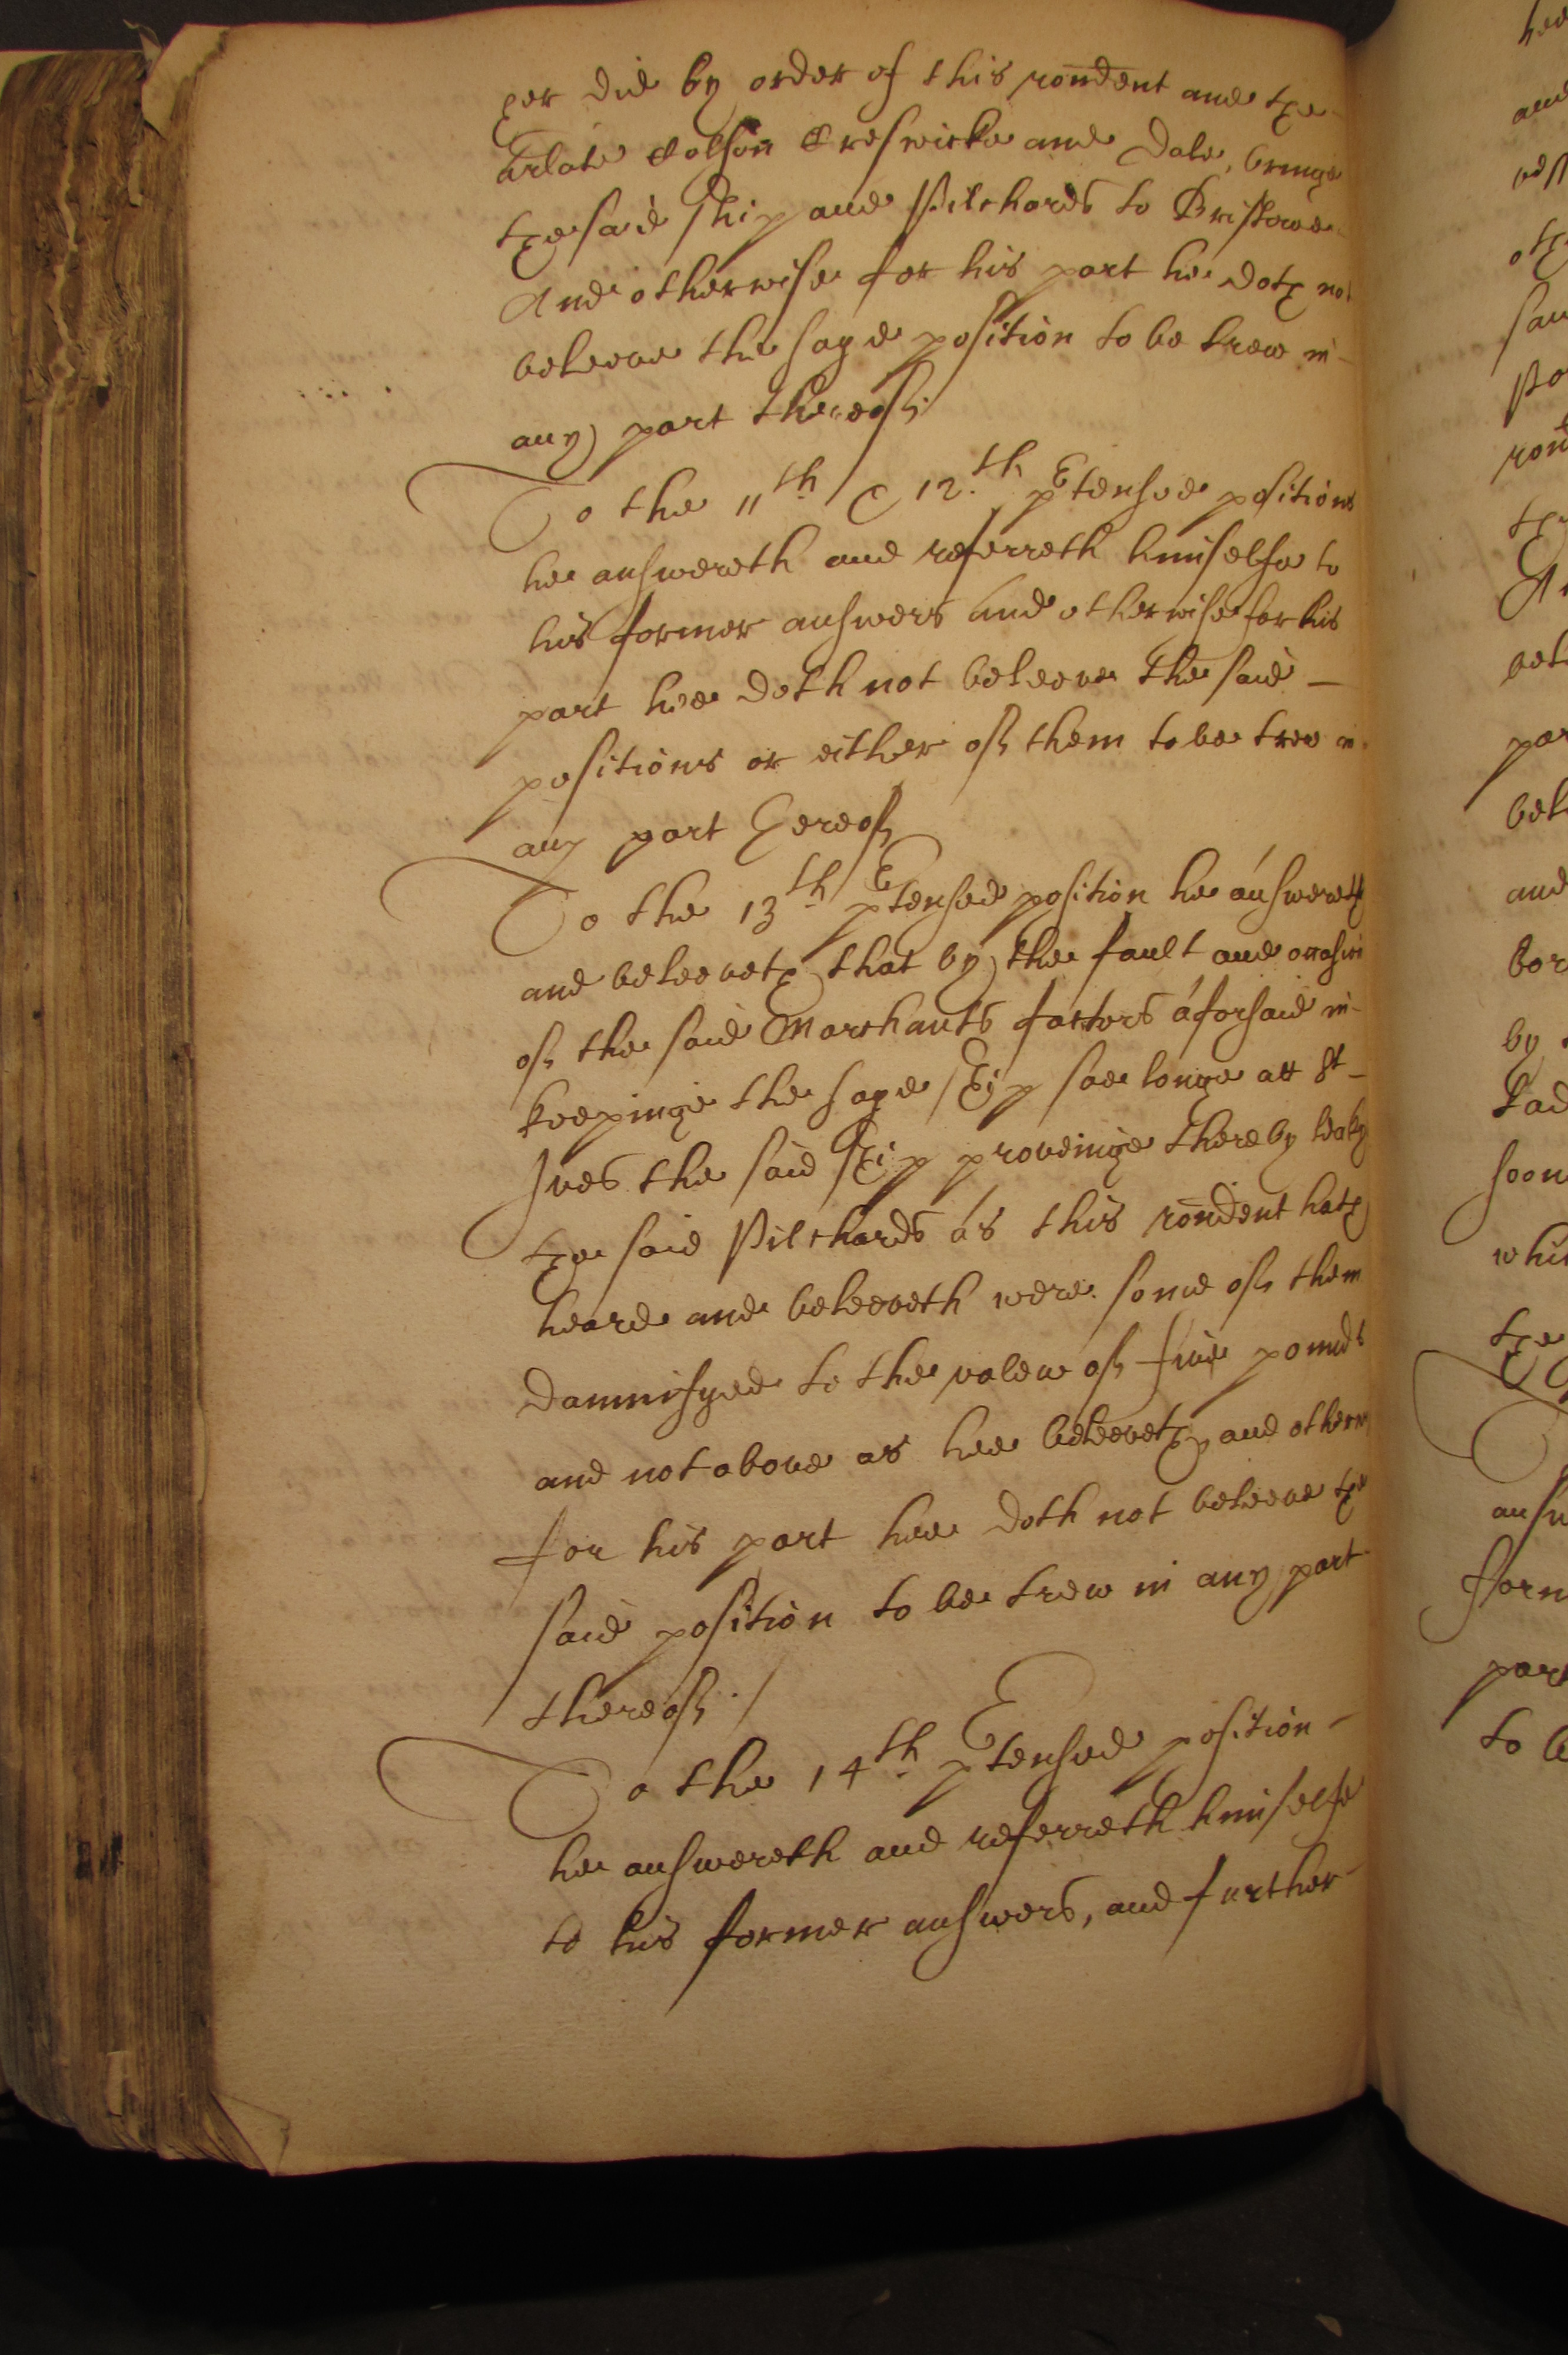 per did by order of this rondent and the
arlate Colson Creswicke and Dale, bringe
the said ship and Pilchards to Bristowe
And otherwise for his part he doth not
beleeve the sayd position to be trew in
any part thereof.
To the 11th & 12th ptensed positions
he answereth and referreth himselfe to
his former answers and otherwise for his
part hee doth not beleeve the said
positions or either of them to be trew in
any part hereof
To the 13th ptensed position he answereth
and beleeveth that by the fault and occasion
of the said Marchants factors aforsaid in
keepinge the sayd ship soe longe att St
Ives the said ship proveinge thereby leaky
the said Pilchards as this rondent hath
heard and beleeveth were some of them
damnifyed to the valew of five pounds
and not above as hee beleeveth, and otherw
for his part hee doth not beleeve the
said position to be trew in any part
thereof. /
To the 14th ptensed position
he answereth and referreth himselfe
to his former answers, and further